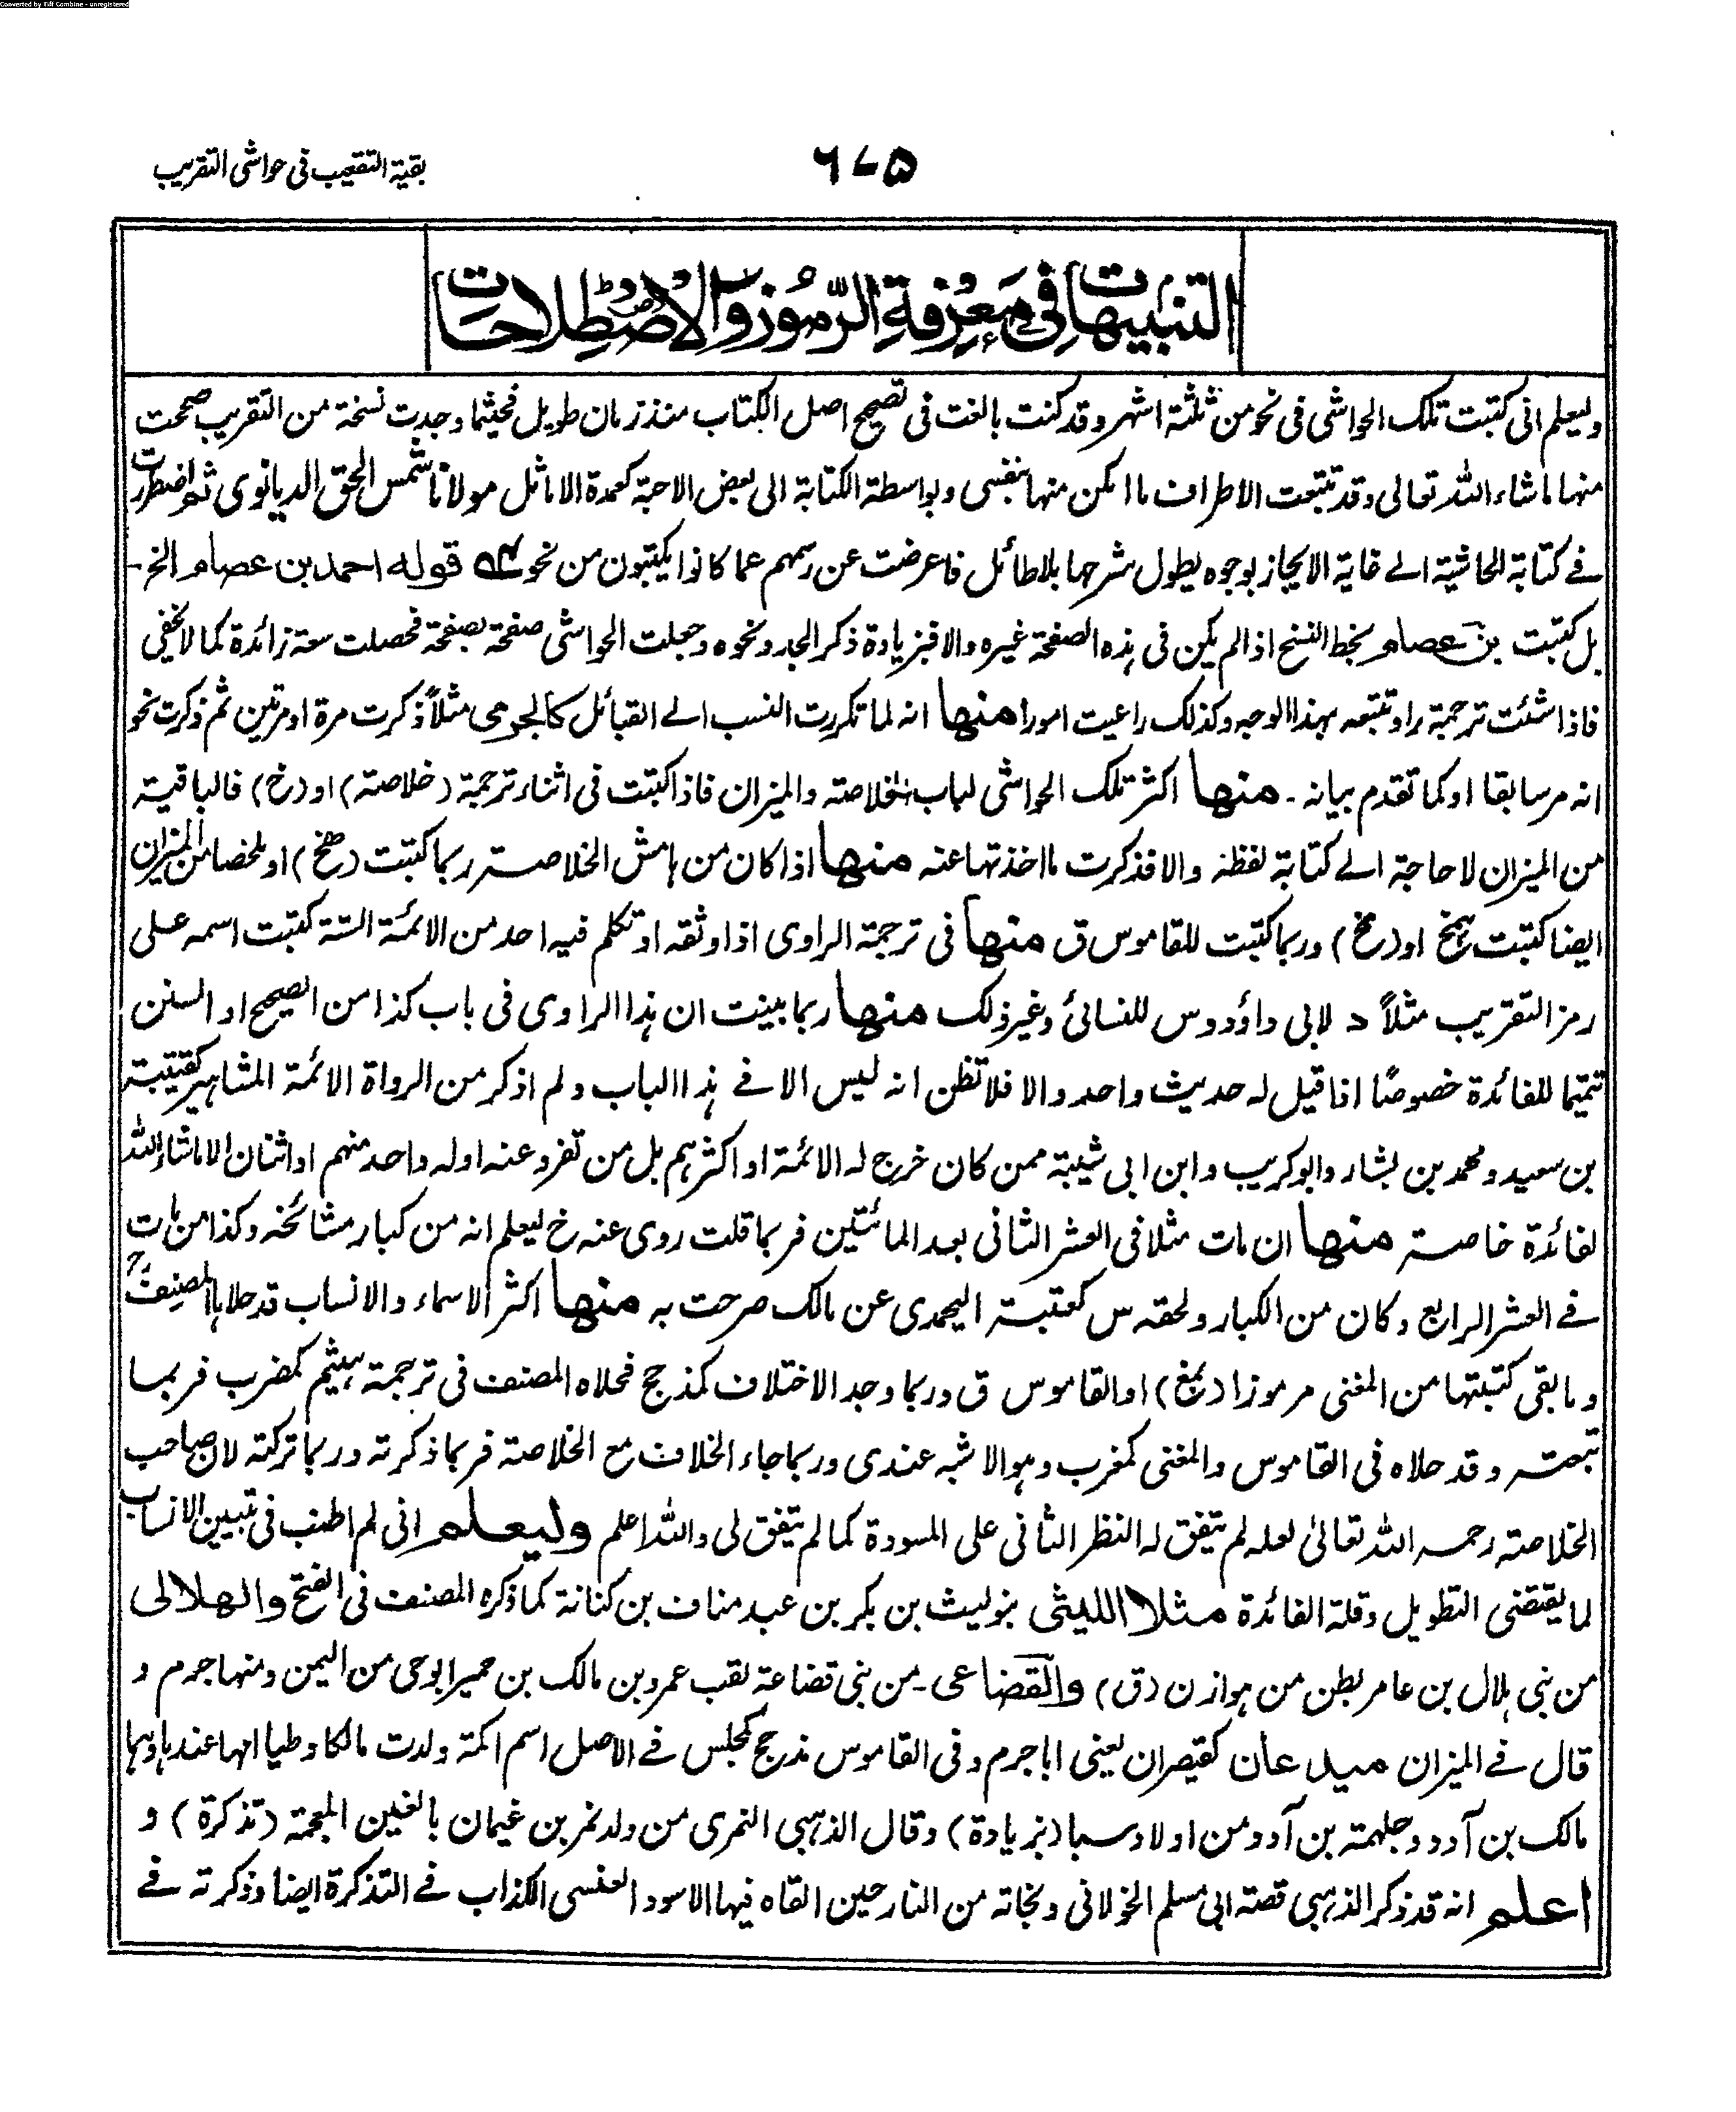 Converted by Tiff Combine - unregistered
بقية التقعيب فی حواشی التقريب
٦٧٥
التنبيهات فی معرفة الرموز والاصطلاحات
وليعلم انی كتبت تلک الحواشی فی نحو من ثلثة اشهر وقد كنت بالغت فی تصحيح اصل الكتاب منذ زمان طويل فحيثما وجدت نسخة من التقريب صححت
منها ماشاء الله تعالی وقد تتبعت الاطراف ما امكن منها بنفسی وبواسطة الكتابة الی بعض الاحبة كعمدة الاماثل مولانا شمس الحق الديانوی ثم اضطررت
فے كتابة الحاشية الے غاية الايجاز بوجوه يطول شرحها بلا طائل فاعرضت عن رسمهم عما كانوا يكتبون من نحو قوله احمد بن عصام الخ-
بل كتبت بن عصام بخط النسخ اذا لم يكن فی هذه الصفحة غيره والا فبزيادة ذكر الجد ونحوه وجعلت الحواشی صفحة بصفحة فحصلت سعة زائدة كما لا يخفی
فاذا شئت ترجمة راو تتبعه بهذا الوجه وكذلک راعيت امورا منها انه لما تكررت النسب الے القبائل كالجرمی مثلاً ذكرت مرة او مرتين ثم ذكرت نحو
انه مر سابقا او كما تقدم بيانه - منها اكثر تلک الحواشی لباب الخلاصة والميزان فاذا كتبت فی اثناء ترجمة (خلاصة) او (خ) فالباقية
من الميزان لا حاجة الے كتابة لفظه والا فذكرت ما اخذتها عنه منها اذا كان من هامش الخلاصة ربما كتبت (هخ) او ملخصا من الميزان
ايضا كتبت او (مخ) وربما كتبت للقاموس ق منها فی ترجمة الراوی اذا وثقه او تكلم فيه احد من الائمة الستة كتبت اسمه علی
رمز التقريب مثلاً د لابی داؤد وس للنسائی وغير ذلک منها ربما بينت ان هذا الراوی فی باب كذا من الصحيح او السنن
تتميما للفائدة خصوصًا اذا قيل له حديث واحد والا فلا تظن انه ليس الا فے هذا الباب ولم اذكر من الرواة الائمة المشاهير كقتيبة
بن سعيد ومحمد بن بشار وابو كريب وابن ابی شيبة ممن كان خرج له الائمة او اكثرهم بل من تفرد عنه اوله واحد منهم او اثنان الا ماشاء الله
لفائدة خاصة منها ان مات مثلا فی العشر الثانی بعد المائتين فربما قلت روی عنه خ ليعلم انه من كبار مشائخه وكذا من مات
فے العشر الرابع وكان من الكبار ولحقه س كعتبة اليحمدی عن مالک صرحت به منها اكثر الاسماء والانساب قد حلاها المصنف
وما بقی كتبتها من المغنی مرموزا (بمغ) او القاموس ق وربما وجد الاختلاف كمذحج فحلاه المصنف فی ترجمة هيثم كمضرب فربما
تبعته وقد حلاه فی القاموس والمغنی كمغرب وهو الاشبه عندی وربما جاء الخلاف مع الخلاصة فربما ذكرته وربما تركته لان صاحب
الخلاصة رحمه الله تعالیٰ لعله لم يتفق له النظر الثانی علی المسودة كما لم يتفق لی والله اعلم وليعلم انی لم اطنب فی تبيين الانساب
لما يقتضی التطويل وقلة الفائدة مثلا الليثی بنو ليث بن بكر بن عبد مناف بن كنانة كما ذكره المصنف فی الفتح والهلالی
من بنی هلال بن عامر بطن من هوازن (ق) والقضاعی - من بنی قضاعة لقب عمرو بن مالک بن حمير ابو حی من اليمن ومنها جرم و
قال فے الميزان ميدعان كقيصران يعنی ابا جرم وفی القاموس مذحج كمجلس فے الاصل اسم اكمة ولدت مالكا وطيا امها عندها وهما
مالک بن آدد وجلهمة بن آدد من اولاد سبا (بزيادة) وقال الذهبی النمری من ولد نمر بن غيمان بالغين المعجمة (تذكرة) و
اعلم انه قد ذكر الذهبی قصة ابی مسلم الخولانی ونجاته من النار حين القاه فيها الاسود العنسی الكذاب فے التذكرة ايضا وذكرته فے